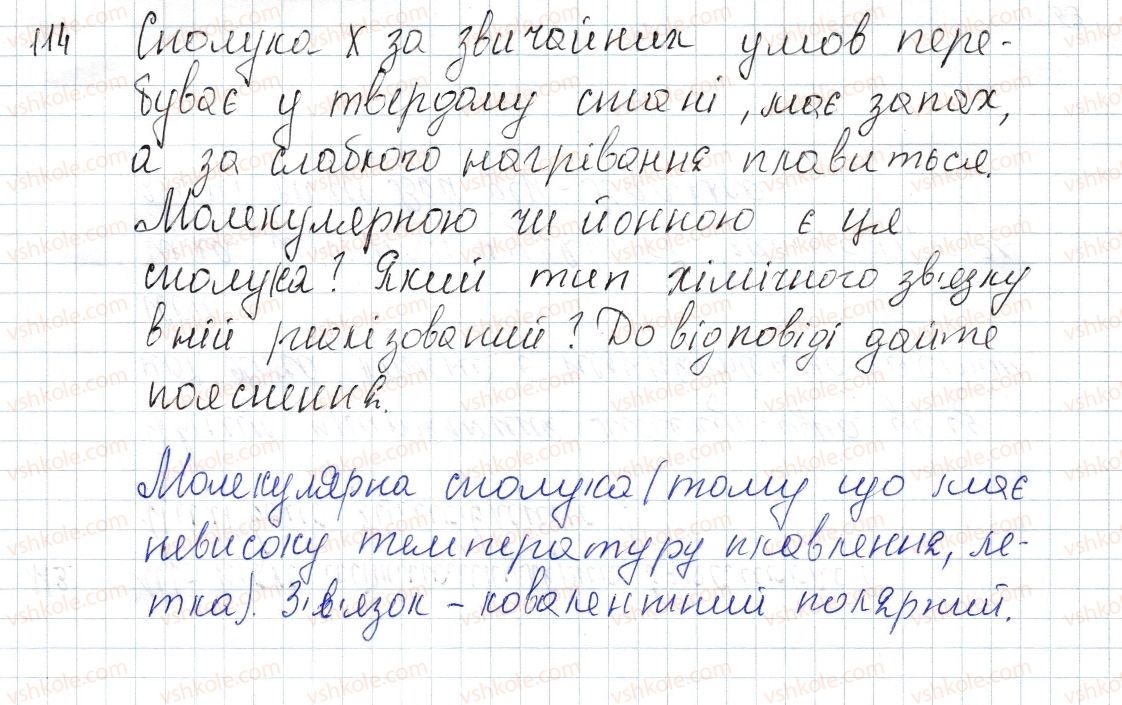 114 Сполука X за звичайних умов пере-
буває у твердому стані, має запах,
а за слабкого нагрівання плавиться.
Молекулярною чи йонною є ця
сполука? Який тип хімічного зв'язку
в ній реалізований? До відповіді дайте
пояснення.
Молекулярна сполука (тому що має
невисоку температуру плавлення, ле-
тка). Зв'язок - ковалентний полярний.